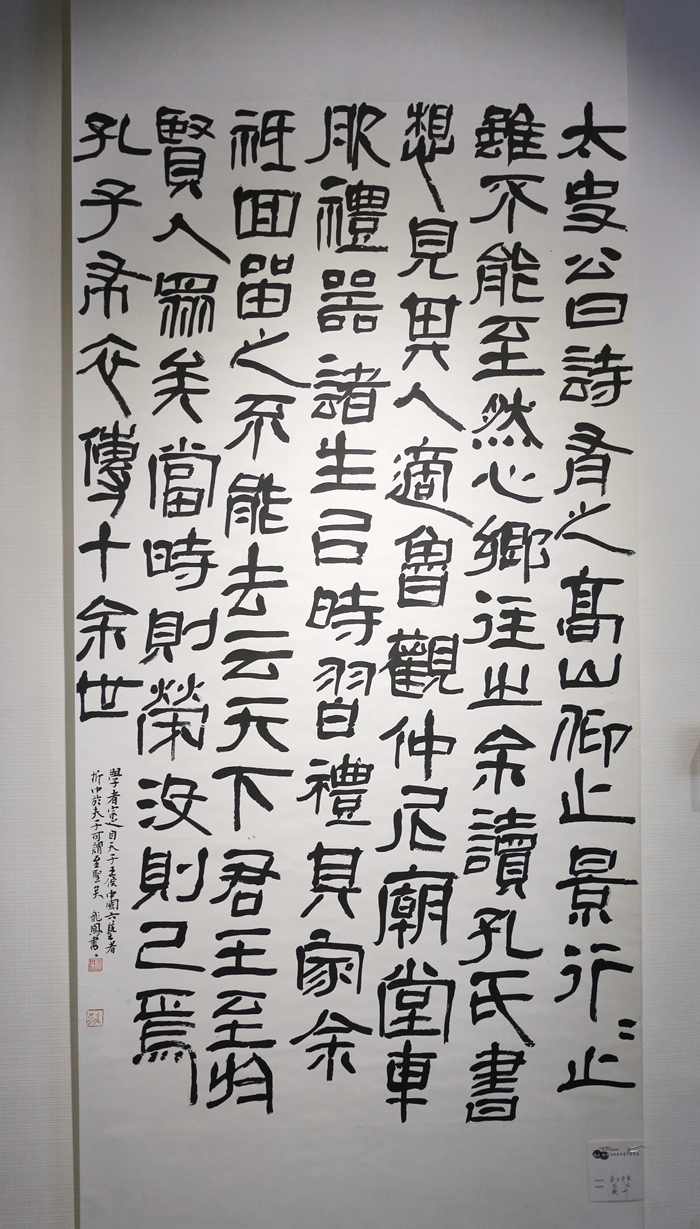 太史公曰詩有之高山仰止景行〻止
雖不能至然心鄉往之余讀孔氏書
想見其人適魯觀仲尼廟堂車
服禮器諸生以時習禮其家余
祗回留之不能去云天下君王至於
賢人眾矣當時則榮沒則已焉
孔子布衣傳十余世
學者宗之自天子王侯中國六藝者
折中於夫子可謂至聖矣 龍鳳書